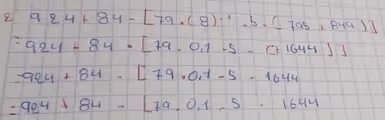 2 924 + 84 - [79 . (8)⁻¹ . 5 - (795 + 844)]
= 924 + 84 - [79 . 0,1 - 5 - (+1644)]
= 924 + 84 - [79 . 0,1 - 5 - 1644
= 924 + 84 - [79 . 0,1 - 5 - 1644